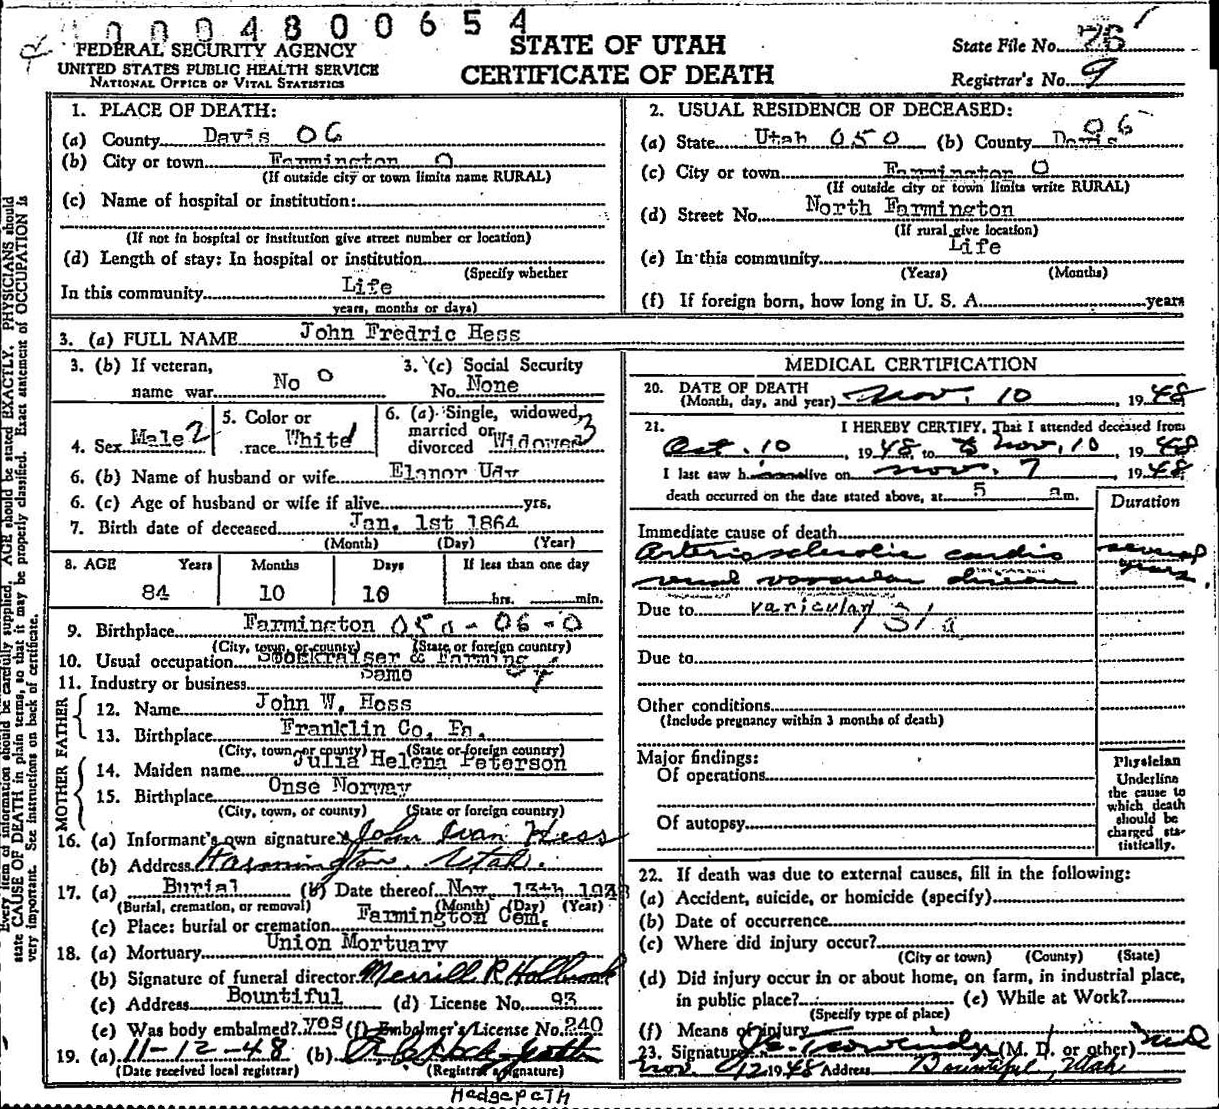 0004800654
FEDERAL SECURITY AGENCY
UNITED STATES PUBLIC HEALTH SERVICE
NATIONAL OFFICE OF VITAL STATISTICS
STATE OF UTAH
CERTIFICATE OF DEATH
State File No. 76
Registrar's No. 9
1. PLACE OF DEATH:
(a) County Davis 06
(b) City or town Farmington 0
(If outside city or town limits name RURAL)
(c) Name of hospital or institution:
(If not in hospital or institution give street number or location)
(d) Length of stay: In hospital or institution
(Specify whether
In this community Life
years, months or days)
2. USUAL RESIDENCE OF DECEASED:
(a) State Utah 050 (b) County Davis 06
(c) City or town Farmington 0
(If outside city or town limits write RURAL)
(d) Street No. North Farmington
(If rural give location)
(e) In this community Life
(Years) (Months)
(f) If foreign born, how long in U. S. A. years
3. (a) FULL NAME John Fredric Hess
3. (b) If veteran,
name war No 0
3. (c) Social Security
No. None
4. Sex Male 2
5. Color or
race White 1
6. (a) Single, widowed,
married or
divorced Widowed 3
6. (b) Name of husband or wife Elanor Udy
6. (c) Age of husband or wife if alive yrs.
7. Birth date of deceased Jan. 1st 1864
(Month) (Day) (Year)
8. AGE Years Months Days If less than one day
84 10 10 hrs. min.
9. Birthplace Farmington 050-06-0
(City, town, or county) (State or foreign country)
10. Usual occupation Stockraiser & Farming
11. Industry or business Same
MOTHER FATHER
12. Name John W. Hess
13. Birthplace Franklin Co. Pa.
(City, town, or county) (State or foreign country)
14. Maiden name Julia Helena Peterson
15. Birthplace Onse Norway
(City, town, or county) (State or foreign country)
16. (a) Informant's own signature John Ivan Hess
(b) Address Farmington, Utah.
17. (a) Burial (b) Date thereof Nov. 13th 1948
(Burial, cremation, or removal) (Month) (Day) (Year)
(c) Place: burial or cremation Farmington Cem.
18. (a) Mortuary Union Mortuary
(b) Signature of funeral director Merrill R Holbrook
(c) Address Bountiful (d) License No. 93
(e) Was body embalmed? yes (f) Embalmer's License No. 240
19. (a) 11-12-48 (b)
(Date received local registrar) (Registrar's signature)
Hedgepeth
MEDICAL CERTIFICATION
20. DATE OF DEATH
(Month, day, and year) Nov. 10, 1948
21. I HEREBY CERTIFY, That I attended deceased from
Oct. 10, 1948, to Nov. 10, 1948
I last saw him alive on Nov. 7 1948
death occurred on the date stated above, at 5 am.
Duration
Immediate cause of death
Arteriosclerotic cardio several
renal vascular disease years.
Due to
Due to
Other conditions
(Include pregnancy within 3 months of death)
Major findings:
Of operations
Of autopsy
Physician
Underline
the cause to
which death
should be
charged sta-
tistically.
22. If death was due to external causes, fill in the following:
(a) Accident, suicide, or homicide (specify)
(b) Date of occurrence
(c) Where did injury occur?
(City or town) (County) (State)
(d) Did injury occur in or about home, on farm, in industrial place,
in public place? (e) While at Work?
(Specify type of place)
(f) Means of injury
23. Signature (M. D. or other) MD
Nov. 12 1948 Address Bountiful, Utah
Every item of information should be carefully supplied. AGE should be stated EXACTLY. PHYSICIANS should
state CAUSE OF DEATH in plain terms, so that it may be properly classified. Exact statement of OCCUPATION is
very important. See instructions on back of certificate.